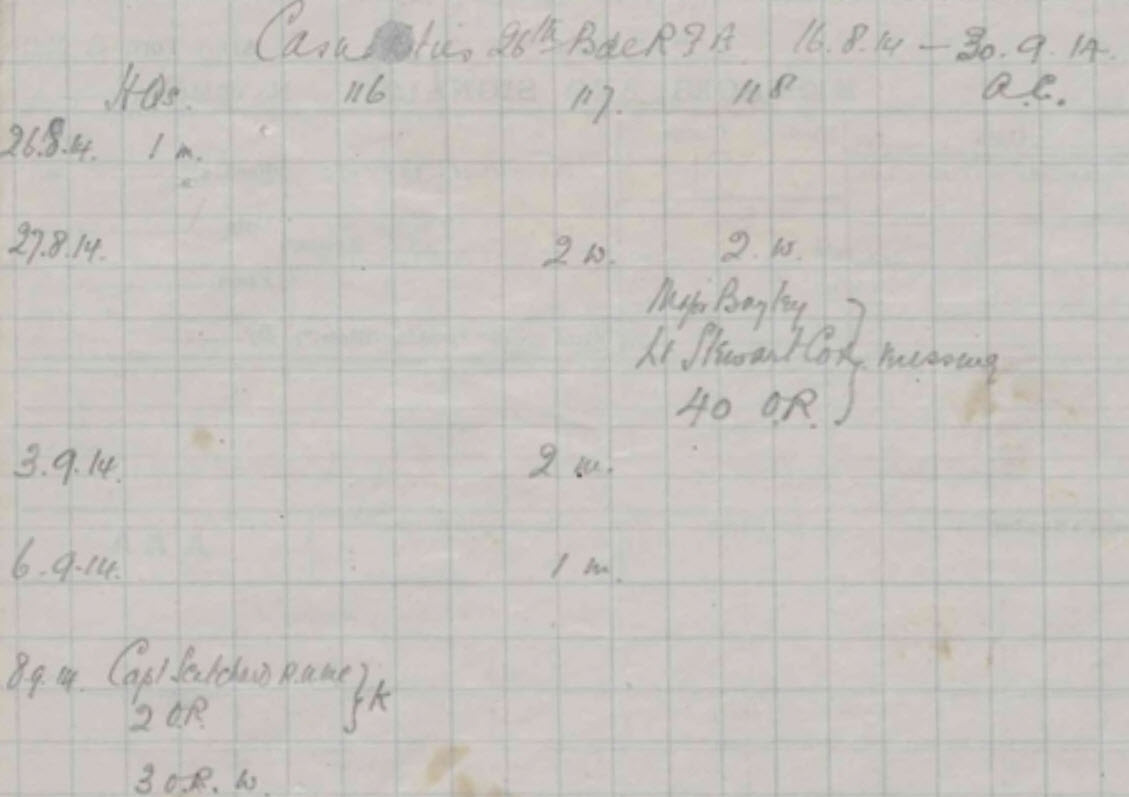 Casualties 26th Bde R F A 16.8.14 - 30.9.14.
HQs. 116 117. 118 a.C.
26.8.14. 1 m.
27.8.14. 2 w. 2. w.
Major Bayley
Lt Stewart Cox } missing
40 O.R.
3.9.14. 2 m.
6.9.14. 1 m.
8.9.14. Capt R.A.M.C } K
2 O.R.
3 O.R. w.